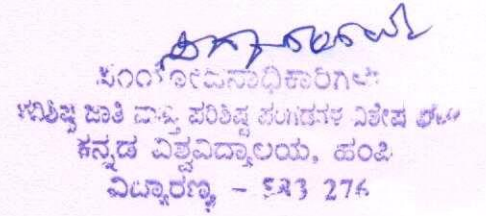 ಸಂಯೋಜನಾಧಿಕಾರಿಗಳು
ಪರಿಶಿಷ್ಟ ಜಾತಿ ಮತ್ತು ಪರಿಶಿಷ್ಟ ಪಂಗಡಗಳ ವಿಶೇಷ
ಕನ್ನಡ ವಿಶ್ವವಿದ್ಯಾಲಯ, ಹಂಪಿ
ವಿದ್ಯಾರಣ್ಯ - 583 276